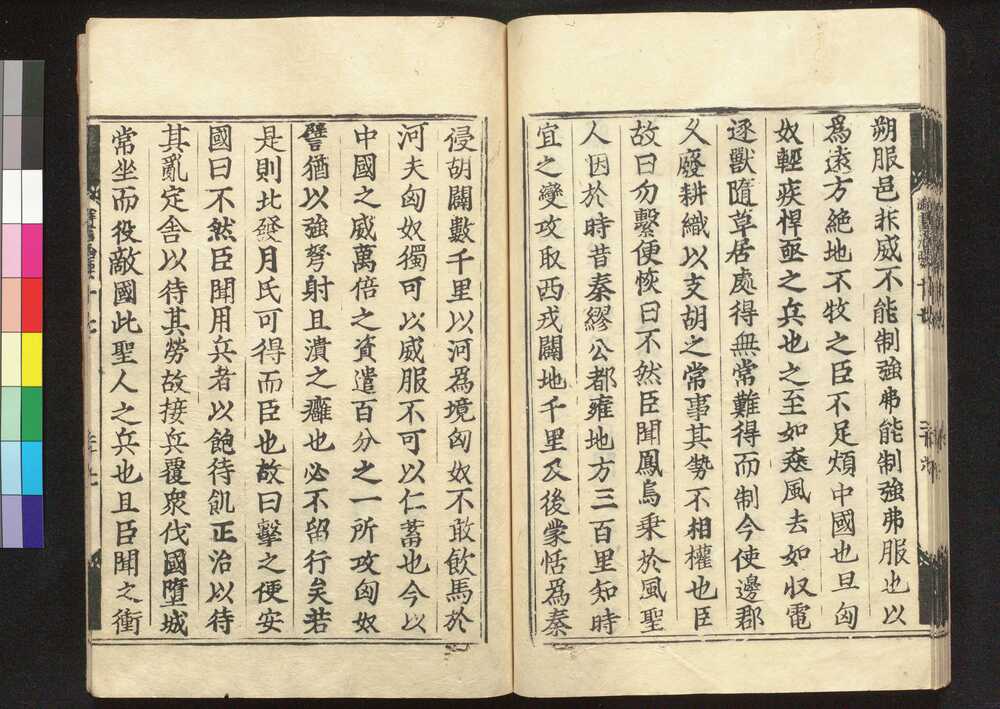 朔服邑非威不能制強弗能制強弗服也以
爲遠方絶地不牧之臣不足煩中國也且匈
奴輕疾悍亟之兵也之至如猋風去如収電
逐獸隨草居處得無常難得而制今使邊郡
久廢耕織以支胡之常事其勢不相權也臣
故曰勿繫便恢曰不然臣聞鳳鳥乗於風聖
人因於時昔秦繆公都雍地方三百里知時
宜之變攻取西戎闢地千里及後蒙恬爲秦
侵胡闢數千里以河爲境匈奴不敢飲馬於
河夫匈奴獨可以威服不可以仁蓄也今以
中國之威萬倍之資遣百分之一所攻匈奴
譬猶以強弩射且潰之癰也必不留行矣若
是則北發月氏可得而臣也故曰擊之便安
國曰不然臣聞用兵者以飽待飢正治以待
其亂定舎以待其勞故接兵覆衆伐國墮城
常坐而役敵國此聖人之兵也且臣聞之衝